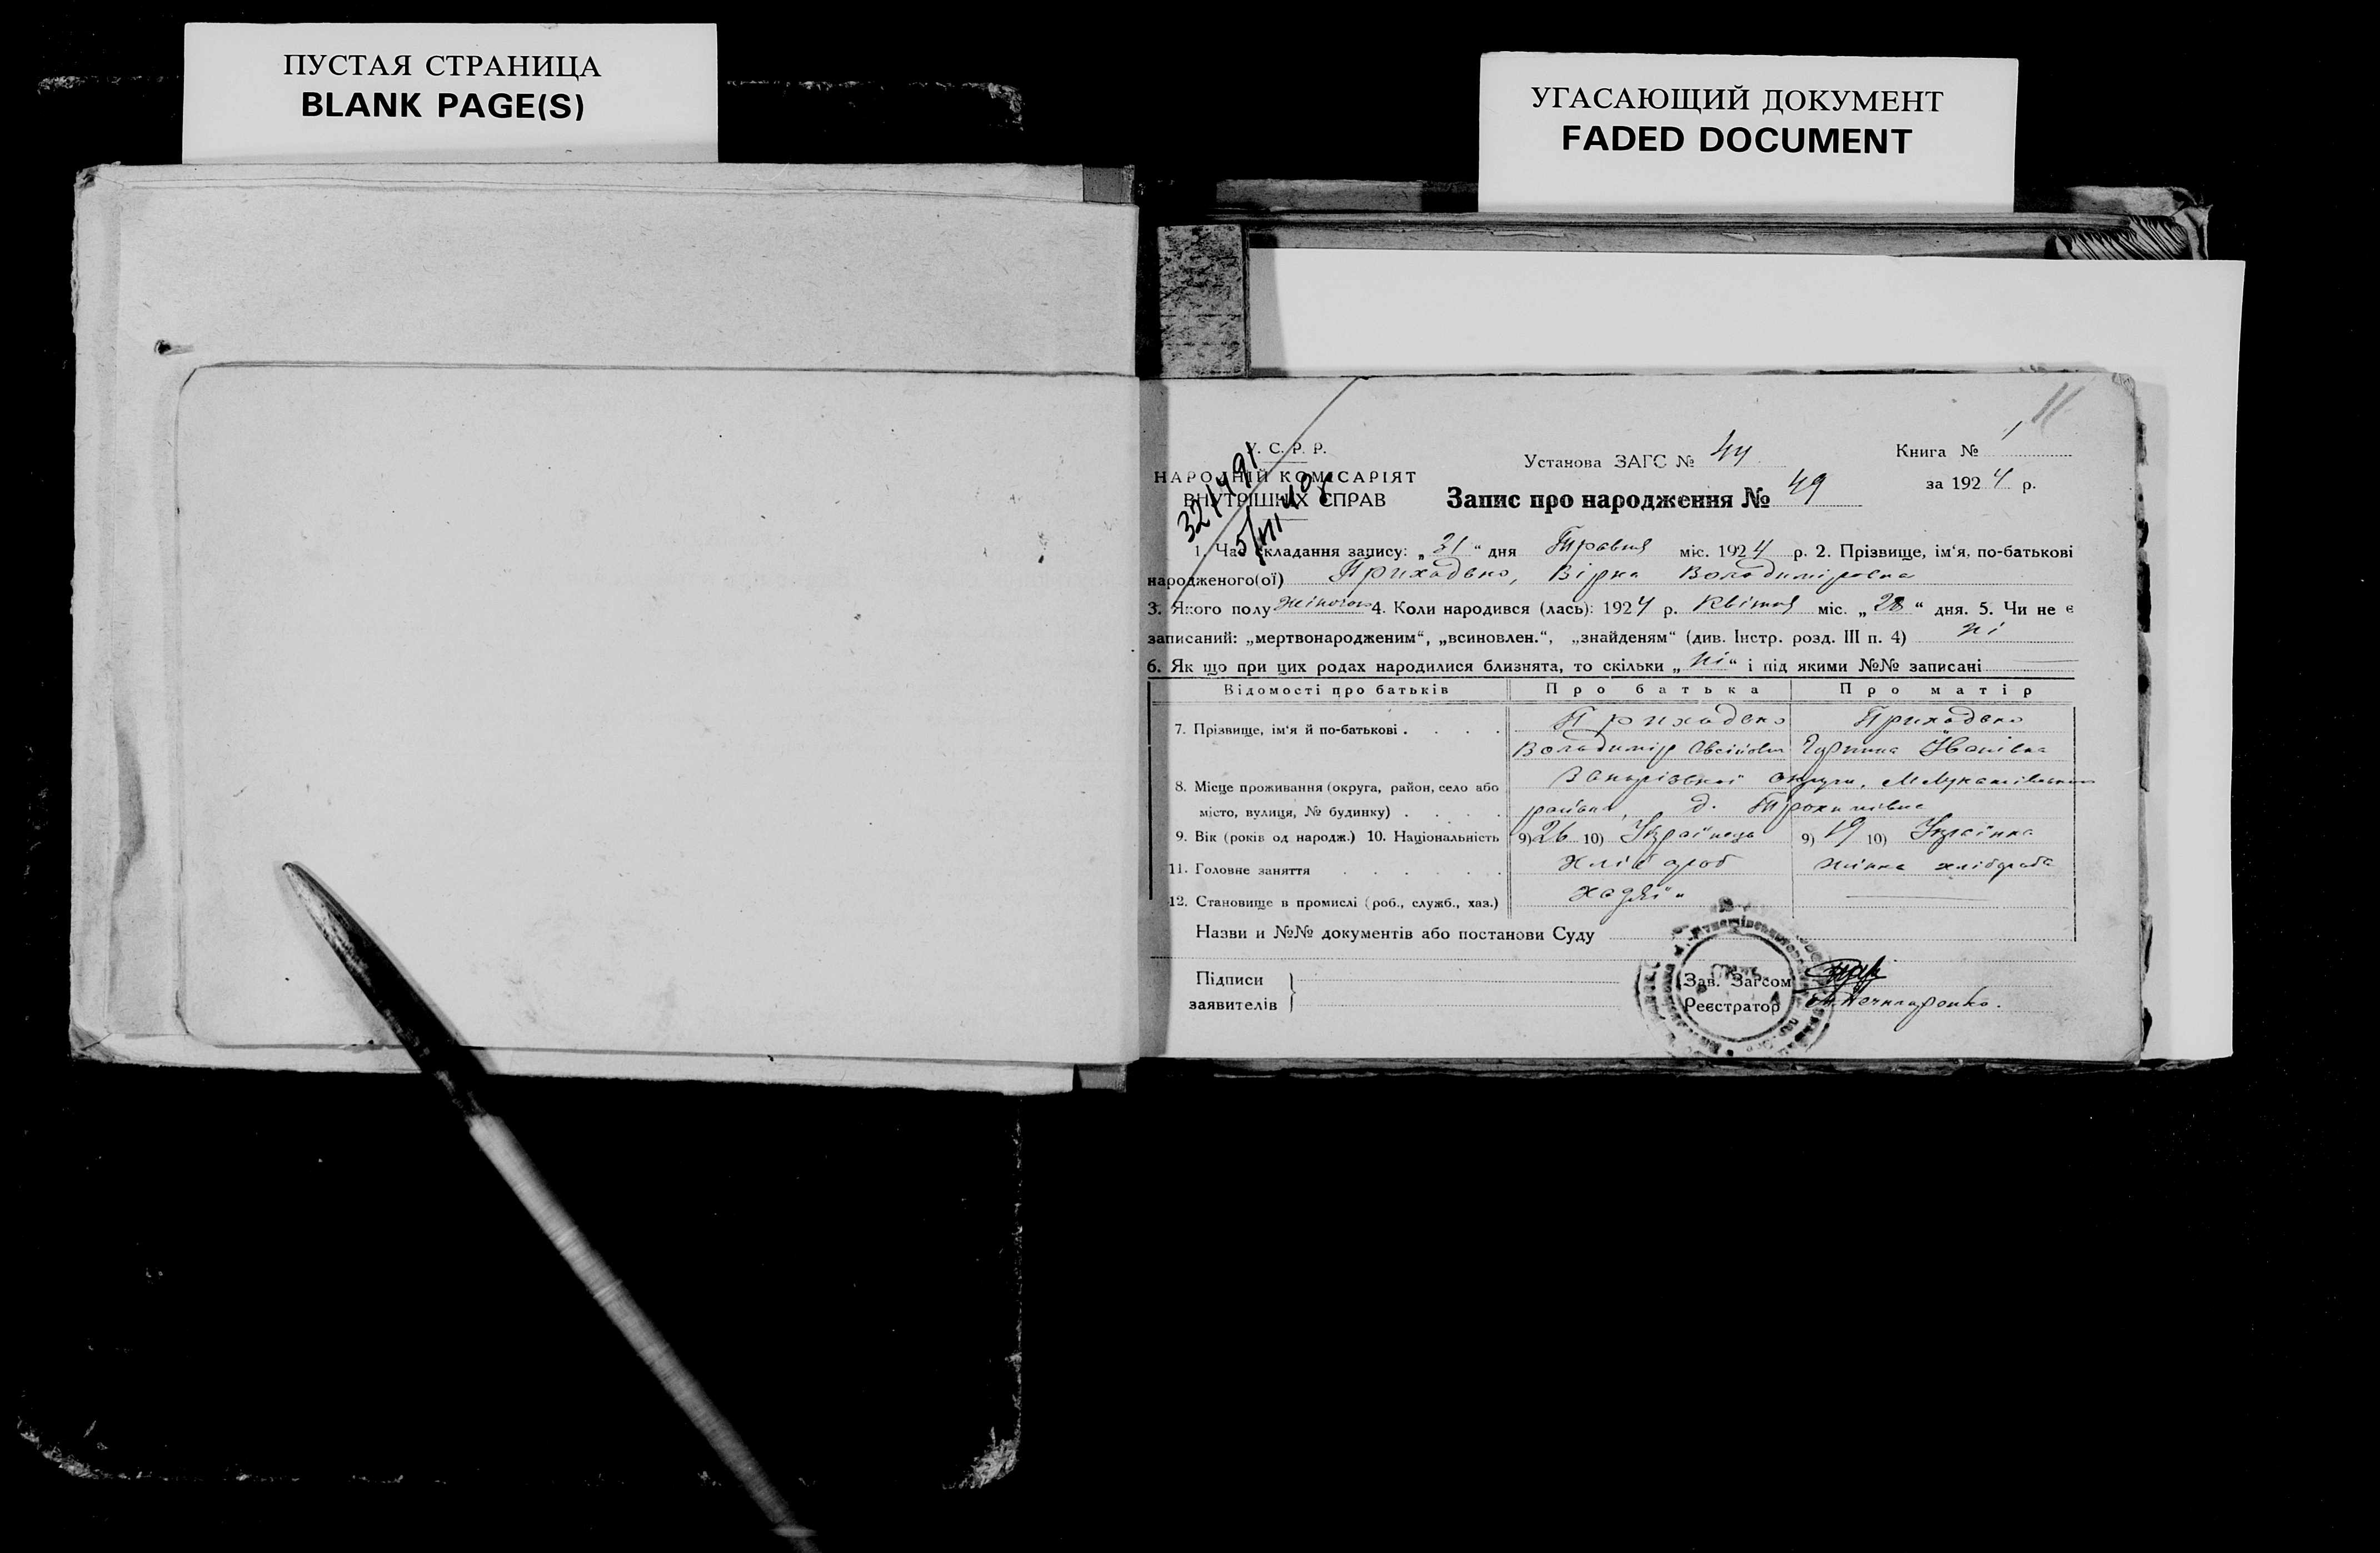 ПУСТАЯ СТРАНИЦА
BLANK PAGE(S)
УГАСАЮЩИЙ ДОКУМЕНТ
FADED DOCUMENT
11
У. С. Р. Р.
НАРОДНІЙ КОМІСАРІЯТ
ВНУТРІШНІХ СПРАВ
Установа ЗАГС № 44
Книга № 1
за 1924 р.
Запис про народження № 49
1. Час складання запису: „31“ дня Травня міс. 1924 р. 2. Прізвище, ім‘я, по-батькові
народженого(ої) Приходько, Вірка Володиміровна
3. Якого полу жіночого 4. Коли народився (лась): 1924 р. Квітня міс. „28“ дня. 5. Чи не є
записаний: „мертвонародженим“, „всиновлен.“, „знайденям“ (див. Інстр. розд. III п. 4) ні
6. Як що при цих родах народилися близнята, то скільки „ні“ і під якими №№ записані
Відомості про батьків Про батька Про матір
7. Прізвище, ім‘я й по-батькові . . . . Приходько Приходько
Володимір Іванівна
8. Місце проживання (округа, район, село або округи,
місто, вулиця, № будинку) . . . . района, д. Трохимівка
9. Вік (років од народж.) 10. Національність 9) 26 10) Українець 9) 19 10) Українка
11. Головне заняття . . . . . . Хлібороб жінка хлібороба
12. Становище в промислі (роб., служб., хаз.)
Назви и №№ документів або постанови Суду
Підписи
заявителів
Зав. Загсом
Реєстратор